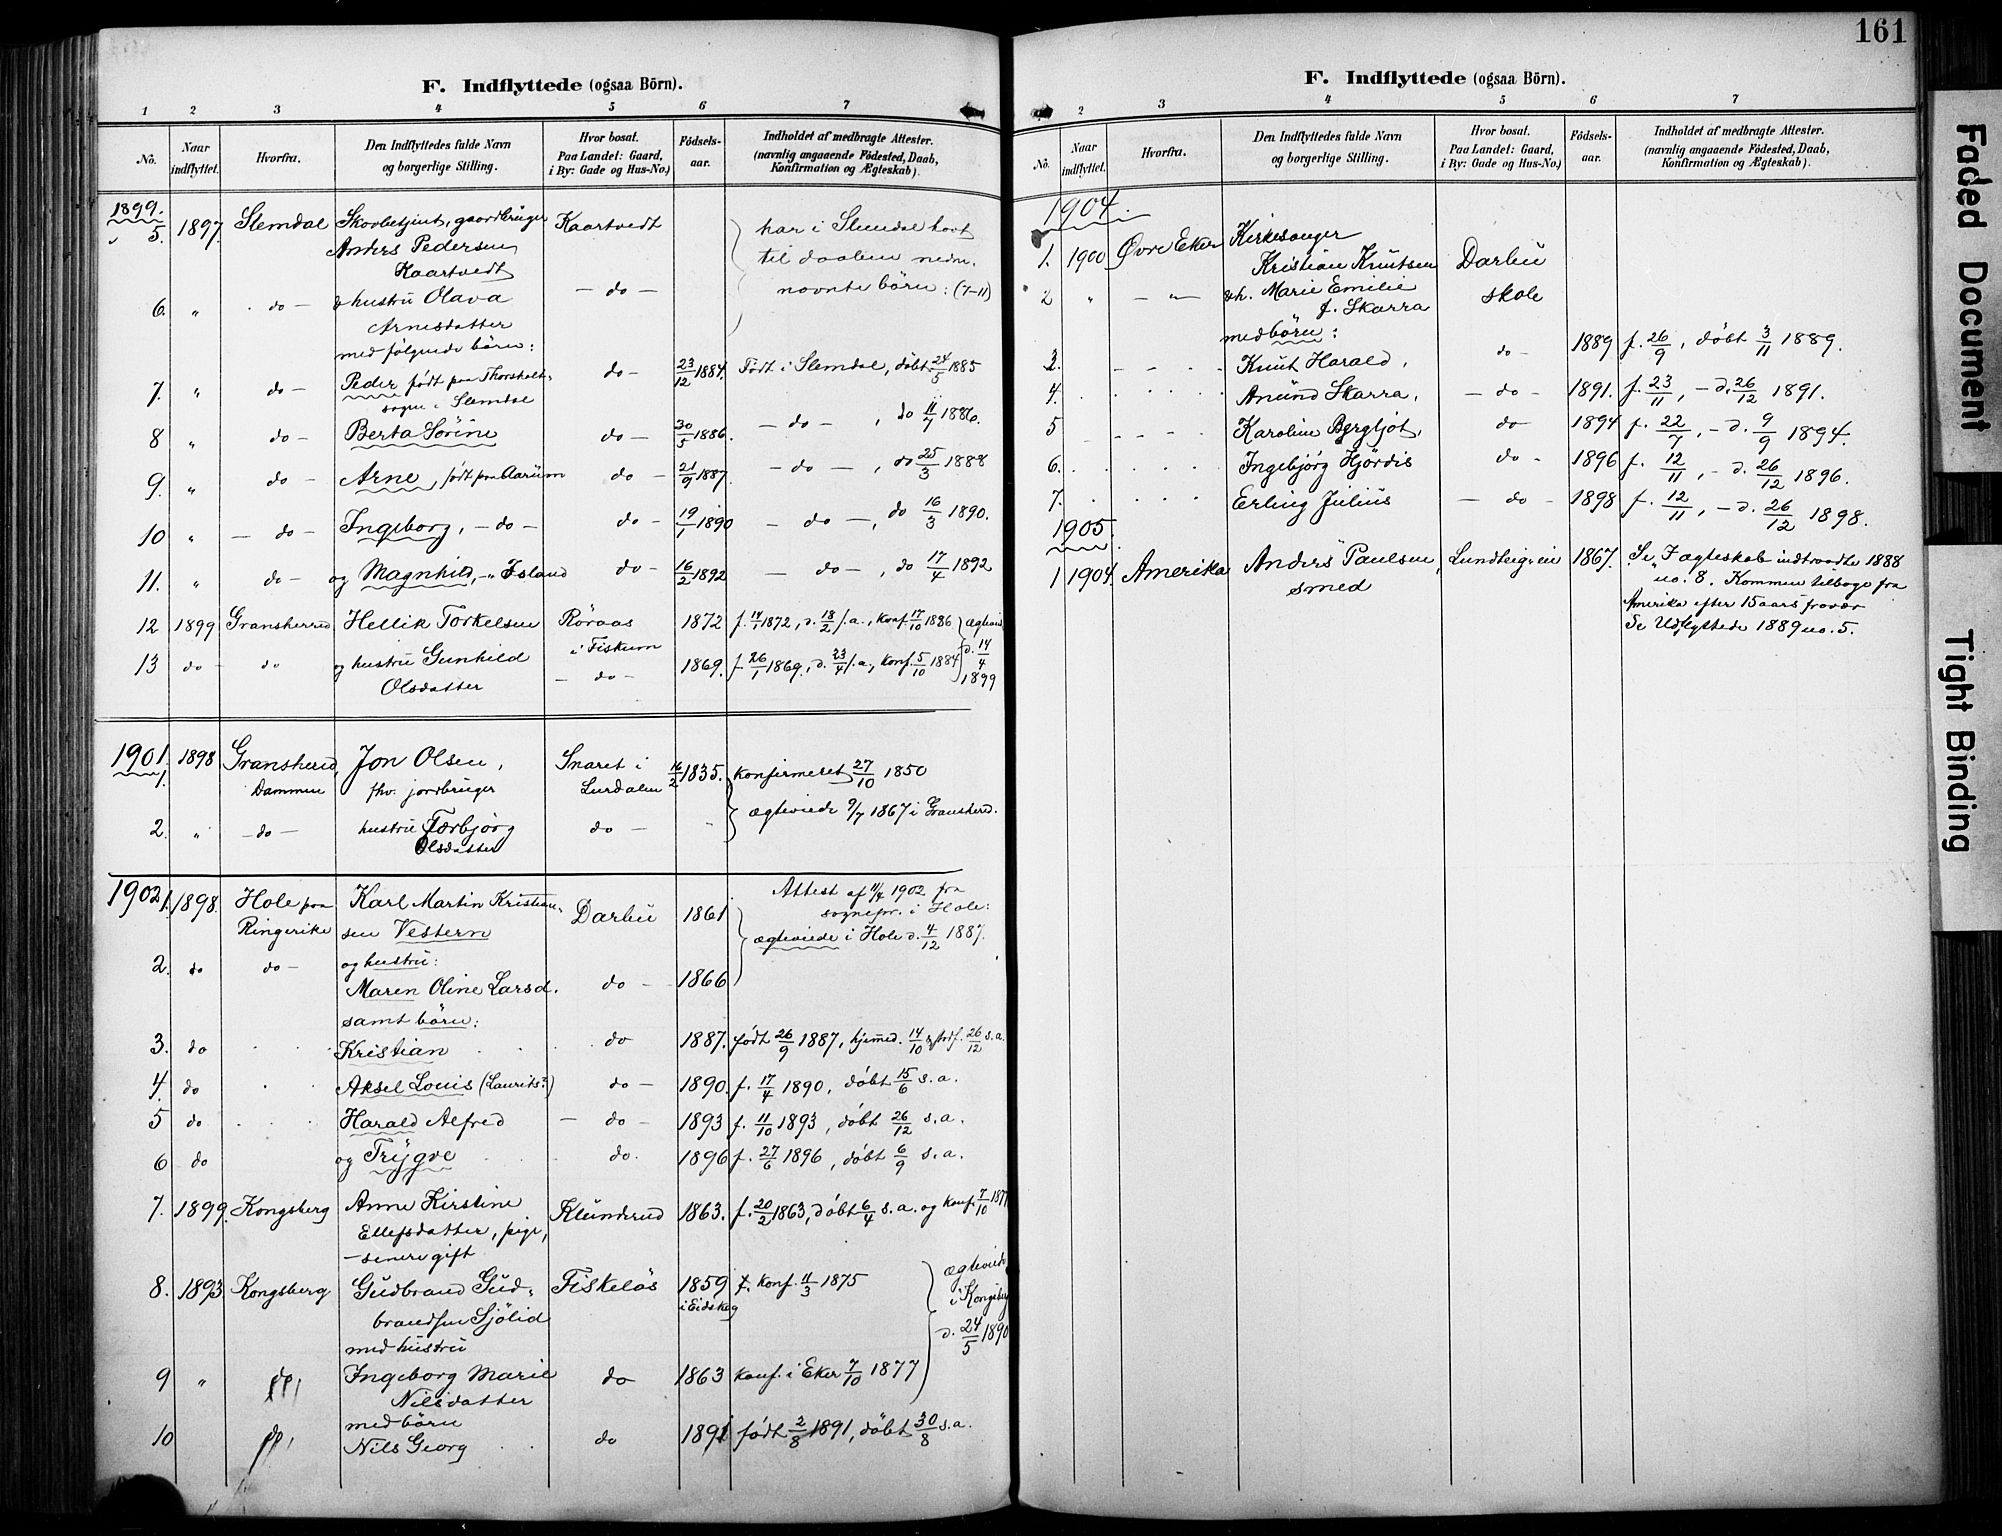 161
F. Indflyttede (ogsaa Börn).
1 2 3 4 5 6 7
No.
Naar indflyttet.
Hvorfra.
Den Indflyttedes fulde Navn
og borgerlige Stilling.
Hvor bosat.
Paa Landet: Gaard,
i By: Gade og Hus-No.)
Födsels-
aar.
Indholdet af medbragte Attester.
(navnlig angaaende Födested, Daab,
Konfirmation og Ægteskab).
1899.
5. 1897 Slemdal Skovbetjent, gaardbruger Kaartvedt har i Slemdal havt
Anders Pedersen til daaben nedn.
Kaartvedt nævnte börn: (7-11)
6. " do — & hustru Olava — do —
Arnesdatter
med følgende börn:
7. " do — Peder født paa Thorsholt- do — 23/12 1884. Født i Slemdal, döbt 24/5 1885
sogn i Slemdal
8 " do — Berta Sörine do — 30/5 1886. — do — , do 11/7 1886.
9. " do — Arne, født paa Aarum do — 21/9 1887. — do — , do 25/3 1888
10 " — do — Ingeborg, — do — do — 19/1 1890 — do —, do 16/3 1890.
11. " do — og Magnhild, " Island do — 16/2 1892 — do —, do 17/4 1892
12 1899 Gransherred Hellik Torkelsen Röraas 1872 f. 14/1 1872, d. 18/2 s.a., konf. 17/10 1886 ægtevied
i Fiskum d. 14/4 1899
13 do — do og hustru Gunhild — do — 1869. f. 26/1 1869, d. 23/4 s.a., konf. 5/10 1884
Olsdatter
1901.
1. 1898 Gransherred, Jon Olsen, Snaret i 16/2 1835. konfirmeret 27/10 1850
Dammen fhv. jordbruger Lurdalen
ægteviede 9/7 1867 i Gransherred.
2. " — do — hustru Torbjörg do —
Olsdatter
1902
1. 1898. Hole paa Karl Martin Kristian- Darbu 1861 Attest af 11/4 1902 fra
Ringerike sen Vestern sognepr. i Hole:
ægteviede i Hole d. 4/12 1887.
2. do do — og hustru:
Maren Oline Larsd. do — 1866
samt börn:
3. do Kristian do 1887. født 26/9 1887, hjemmed. 14/10 & stadf. 26/12 s.a.
4. do Aksel Louis (Laurits?) do — 1890. f. 17/4 1890, döbt 15/6 s.a.
5 do Harald Alfred — do — 1893 f. 11/10 1893, döbt 26/12 s.a.
6 do og Trygve do. 1896 f. 27/6 1896, döbt 6/9 s.a.
7. 1899. Kongsberg Anne Kirstine Klunderud 1863. f. 20/2 1863, döbt 6/4 s.a. og konf. 7/10 187
Ellefsdatter, pige,
— senere gift
8. 1893 Kongsberg Gudbrand Gud- Fiskelös 1859 konf. 11/3 1875 ægteviede
brandsen Sjölid i Eidskog i Kongsberg
med hustru d. 24/5 1890
9 " do Ingeborg Marie do 1863 konf. i Eker 7/10 1877
Nilsdatter
med börn
10 do Nils Georg do 1891 født 2/8 1891, döbt 30/8 s.a.
F. Indflyttede (ogsaa Börn).
2 3 4 5 6 7
No.
Naar indflyttet.
Hvorfra.
Den Indflyttedes fulde Navn
og borgerlige Stilling.
Hvor bosat.
Paa Landet: Gaard,
i By: Gade og Hus-No.)
Födsels-
aar.
Indholdet af medbragte Attester.
(navnlig angaaende Födested, Daab,
Konfirmation og Ægteskab).
1904.
1. 1900 Øvre Eker Kirkesanger
Kristian Knutsen Darbu
2 " — " — & h. Marie Emilie skole
f. Skarra
med börn:
3. Knut Harald, do — 1889 f. 26/9, döbt 3/11 1889.
4. Anund Skarra, — do — 1891. f. 23/11, — d. 26/12 1891.
5 Karoline Bergljot, do — 1894 f. 22/7, — d. 9/9 1894.
6. Ingebjörg Hjördis do — 1896 f. 12/11, — d. 26/12 1896.
7. Erling Julius — do — 1898 f. 12/11, — d. 26/12 1898.
1905.
1 1904. Amerika Anders Paulsen, Lundteigeie 1867. Se "I ægteskab indtraadte 1888
smed no. 8. Kommen tilbage fra
Amerika efter 15 aars fravær
Se Udflyttede 1889 no. 5.
Faded Document
Tight Binding